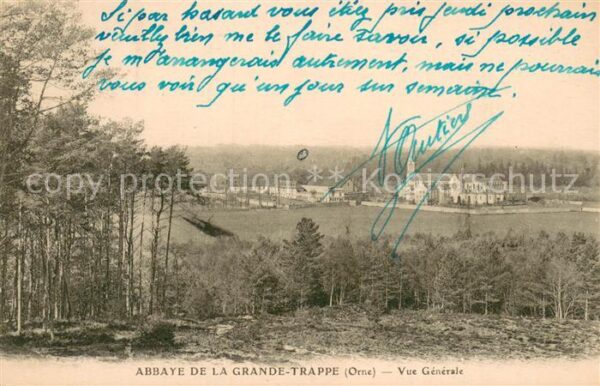 Si par hasard vous étiez pris jeudi prochain
veuillez bien me le faire savoir, si possible
je m'arrangerais autrement, mais ne pourrais
vous voir qu'un jour sur semaine.
copy ** right ** Kopierschutz
ABBAYE DE LA GRANDE-TRAPPE (Orne) — Vue Générale